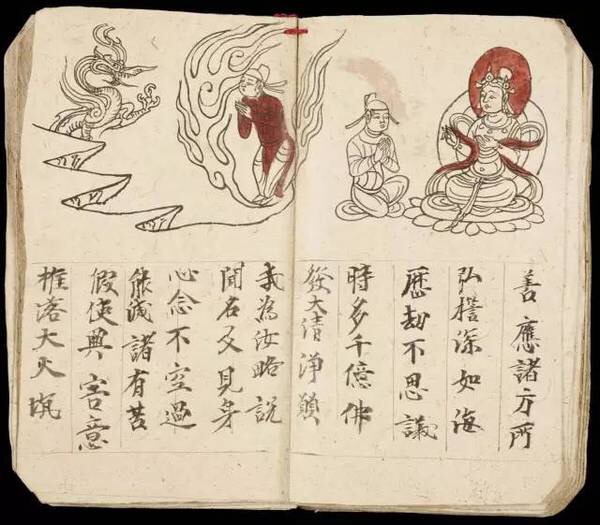 善應諸方所
弘誓深如海
歷劫不思議
時多千億佛
發大清淨願
我為汝略說
聞名及見身
心念不空過
能滅諸有苦
假使興害意
推落大火坑